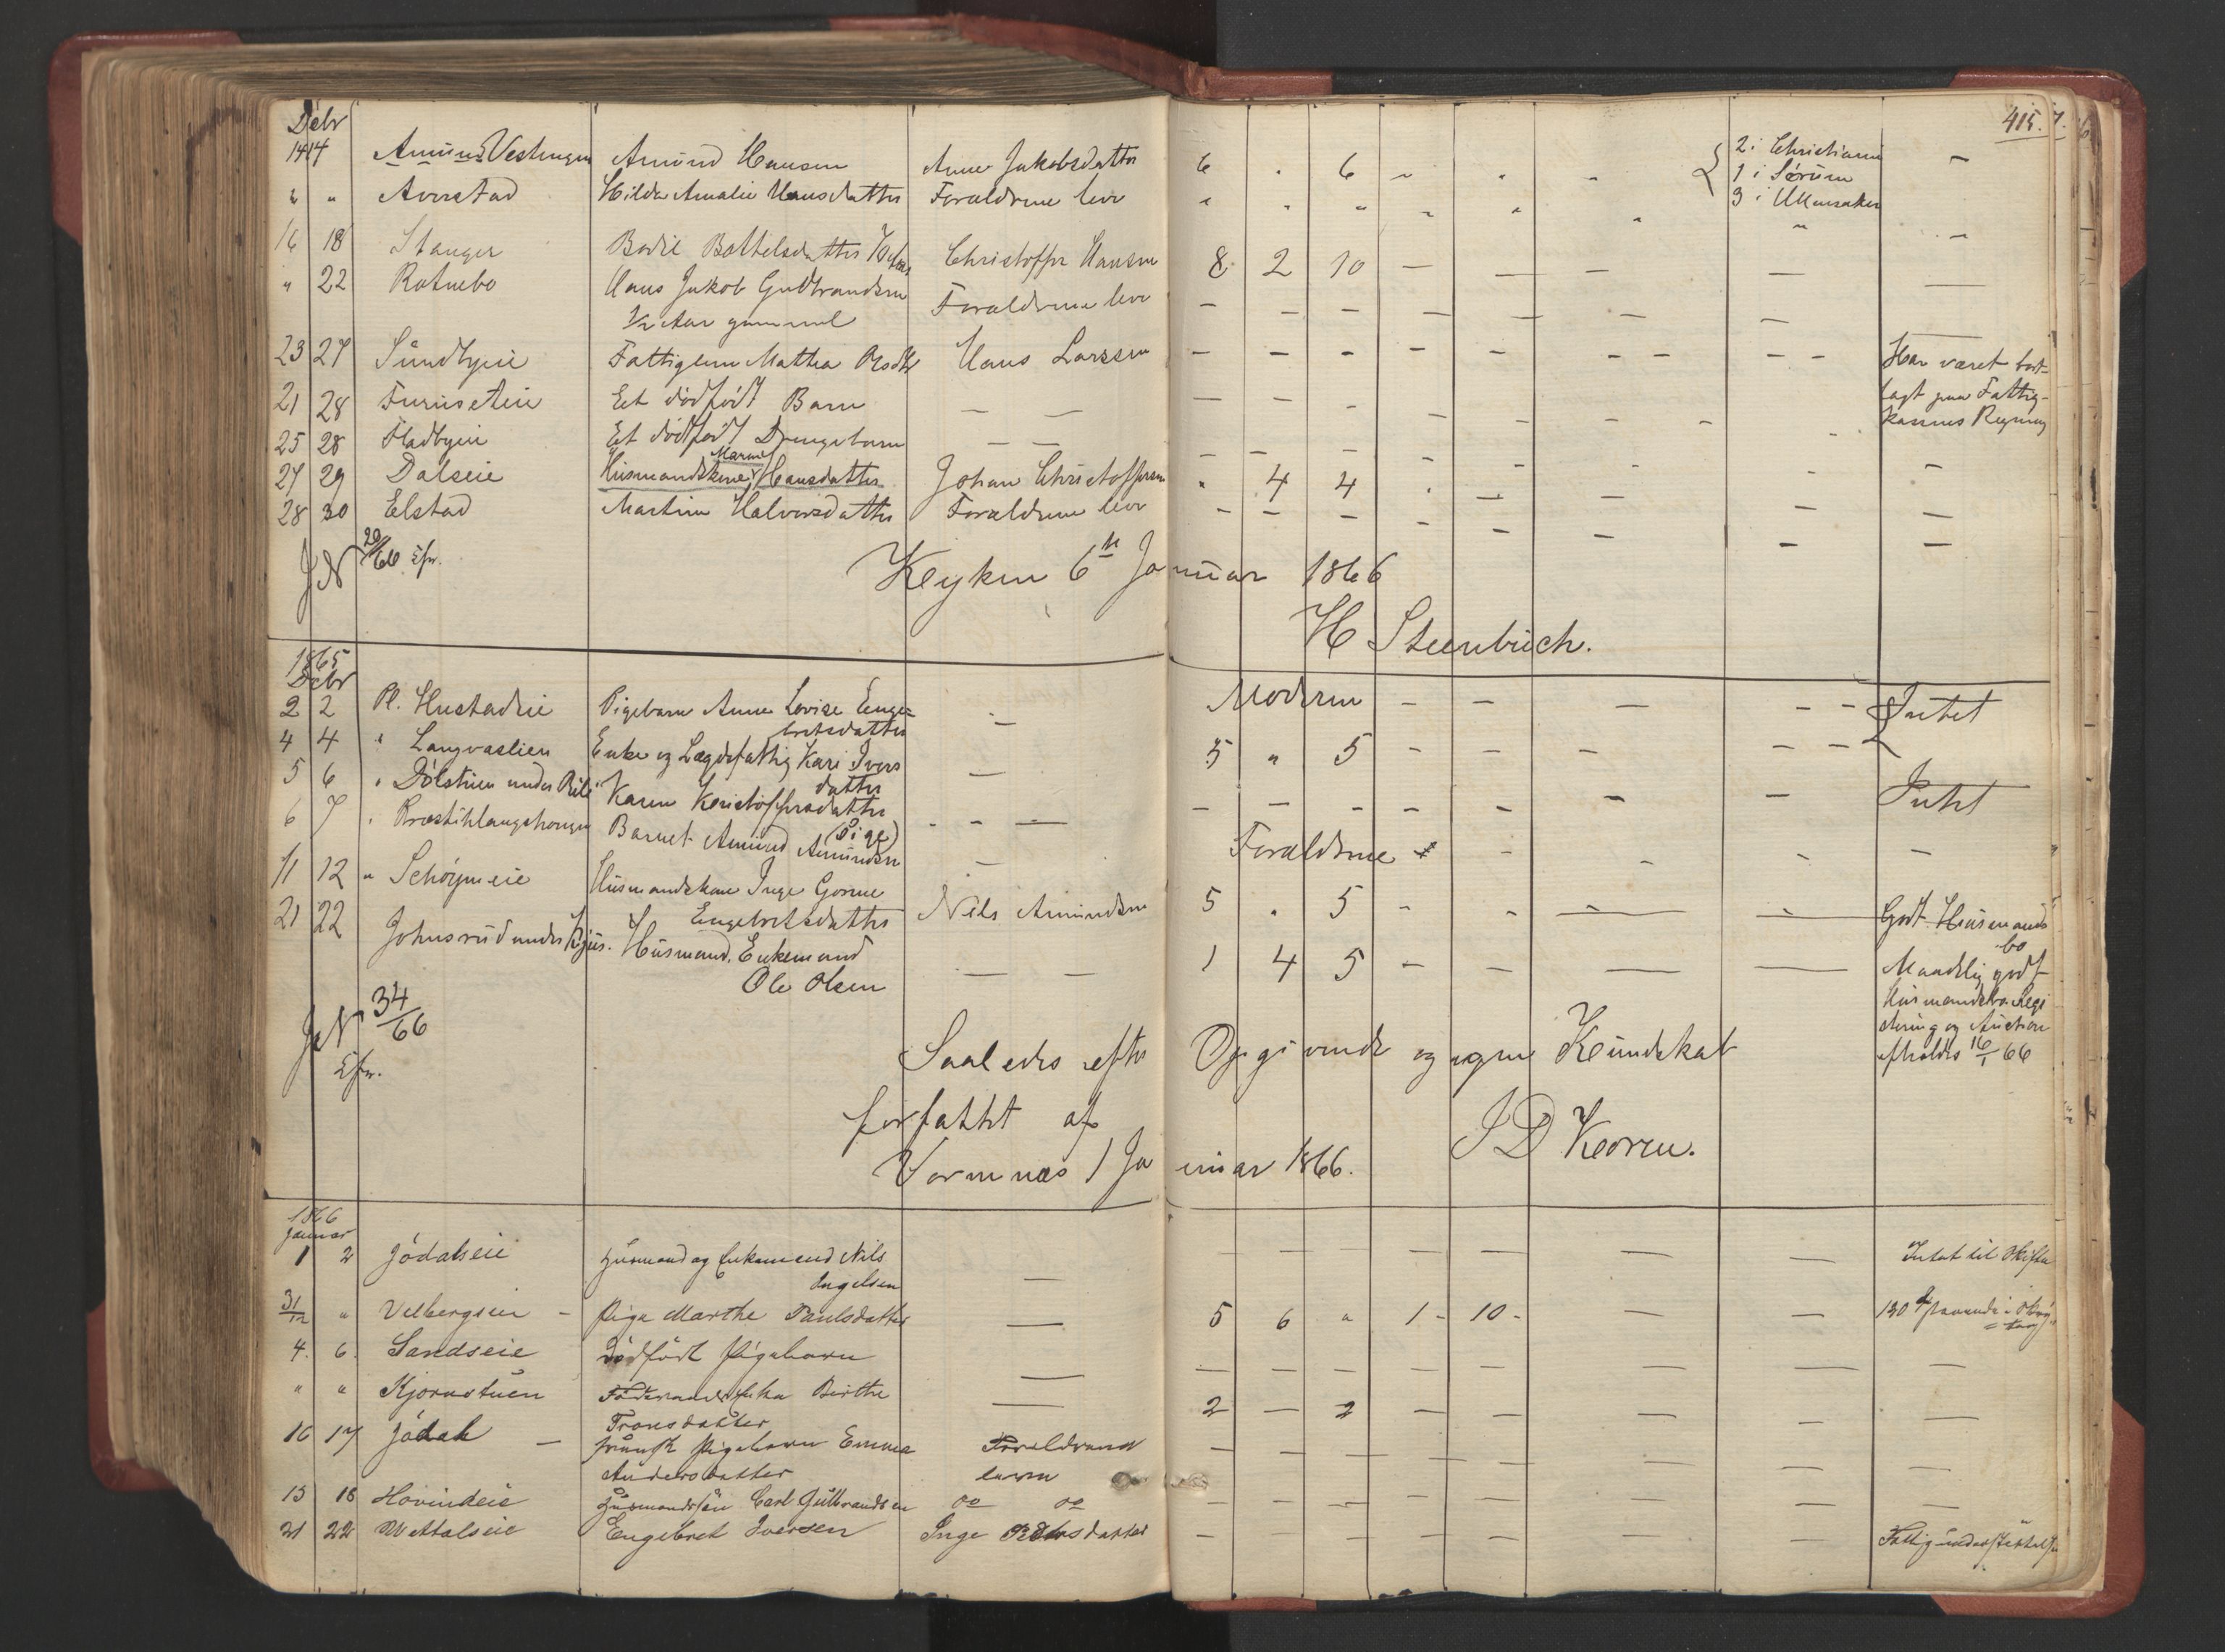 415.
Debr
14 14 Amund Vestengen Amund Hansen Anne Jakobsdatter 6 . 6 - - - { 2 i Christiania -
1 i Sørum
3 i Ullensaker
" " Averstad Hilda Amalie Hansdatter Forældrene leve " " - - " " " -
16 18 Stanger Bodil Bottelsdatter Christoffer Hansen 8 2 10 — — — — —
" 22 Rotnebo Hans Jakob Gulbrandsen Forældrene leve - — — — — — — —
1/2 Aar gammel
23 27 Sundbyeie Fattiglem Mathea Olsdtr Hans Larssen - - - - - - - - - Har været bort-
lagt paa Fattig-
kassens Regning
21 28 Furuseteie Et dødfødt Barn — — — - - - - - -
25 28 Fladbyeie Et dødfødt Drengebarn — — - — - - - - - -
27 29 Dalseie Husmandskone Marine Hansdatter Johan Christoffersen " 4 4 . — — — —
28 30 Elstad Martine Halvorsdatter Forældrene leve - — — - - — — —
JN 20/66 Efn.
Keyken 6te Januar 1866
H Steenbuch.
1865
Debr
2 2 Pl. Hustadeie Pigebarn Anne Lovise Enge= — Moderen - - — - - Intet
bretsdatter
4 4 " Langvaslien Enke og Lægdsfattig Kari Ivers — 5 " 5 - - — - -
datter
5 6 " Dølstuen under Karen Kristoffersdatter - - — — — - - - - — Intet
(Pige)
6 7 " Barnet Amund Amundsen — Forældrene - - - - —
11 12 " Schøyeneie Husmandskone Inge Gorine Nils Amundsen 5 . 5 - - — - Godt Husmands
Engebretsdatter bo
21 22 Johnsrud under Husmand, Enkemand — — 1 4 5 - - — — Maadelig godt
Ole Olsen Husmandsbo. Regi
stering og Auction
afholdes 16/1 66
JN 34/66
Efn.
Saaledes efter Opgivende og egen Kundskab
forfattet af
Vormnæs 1 Januar 1866. I D Keoren.
1866
Januar
1 2 Jødalseie Husmand og Enkemand Nils — — — — — — Intet til Skifte
Ingelsen
31/12 " Velbergseie - Pige Marthe Paulsdatter — 5 6 " 1 - 10 - — — 130
4. 6. Sandseie Dødfødt Pigebarn — — — — — — — — —
" " Kjornstuen Enke Birthe — 2 — 2 — — — — —
Tronsdatter
16 17 Jødahl — Pigebarn Emma Forældrene — — — — — — — —
Andersdatter leven
15 18 Hovindeie Husmandssøn Carl Gulbrandsen do do — — — — — — — —
21 22 Engebret Iversen Inge Pedersdatter — — — — — — — Fattigunderstøttelse